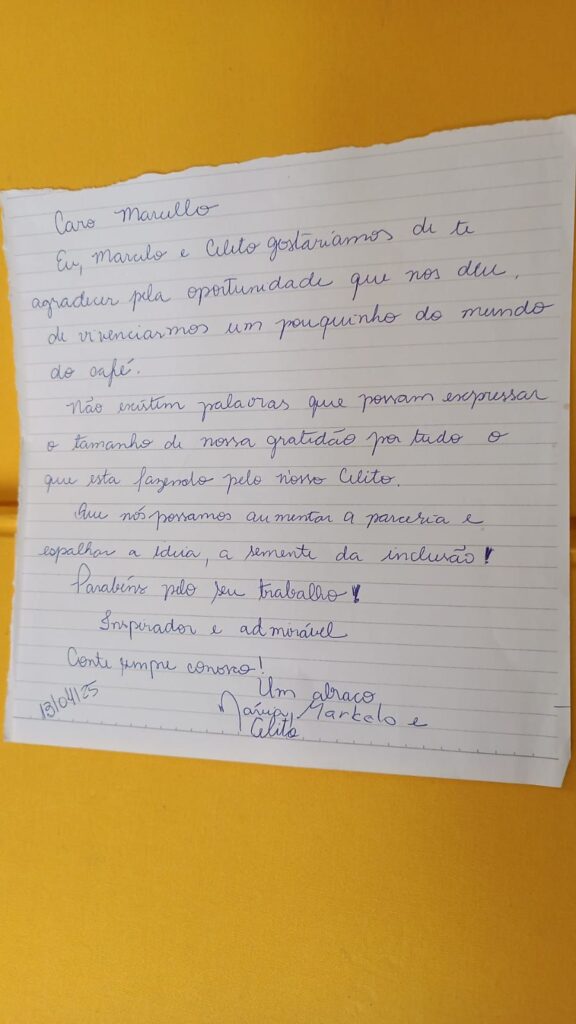 Caro Marcello
Eu, Marcelo e Celito gostariamos de te
agradecer pela oportunidade que nos deu,
de vivenciarmos um pouquinho do mundo
do café.
Não existem palavras que possam expressar
o tamanho de nossa gratidão por tudo o
que esta fazendo pelo nosso Celito.
Que nós possamos aumentar a parceria e
espalhar a ideia, a semente da inclusão!
Parabéns pelo seu trabalho!
Inspirador e admirável
Conte sempre conosco!
Um abraço
Marcelo e
Celito
13/04/25